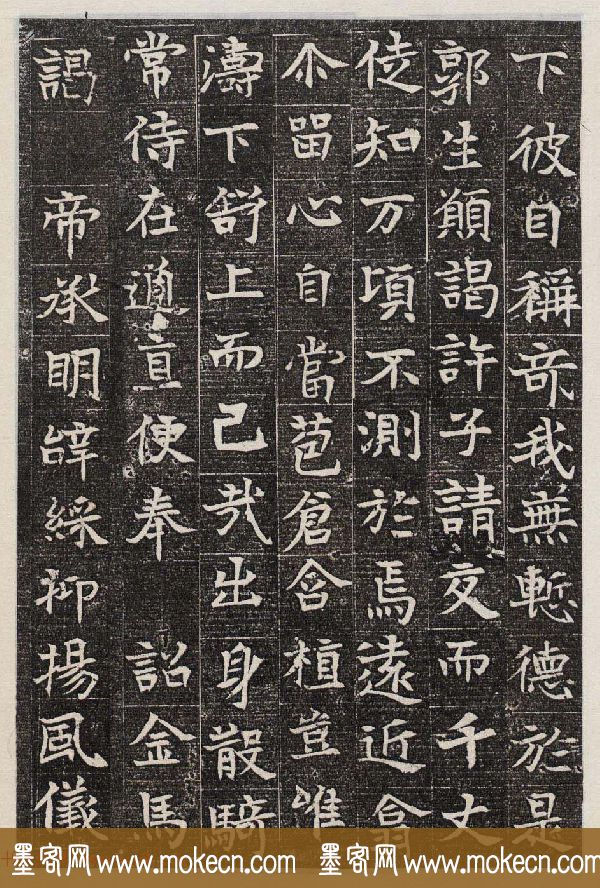 下彼自稱奇我無慙德於是
郭生願謁許子請交而千丈
徒知万頃不測於焉遠近翕
尒留心自當苞倉含植豈唯
濤下舒上而已哉出身散騎
常侍在道直便奉 詔金馬
謁 帝承明辝綵抑揚風儀
墨客网 www.mokecn.com 墨客网 www.mokecn.com